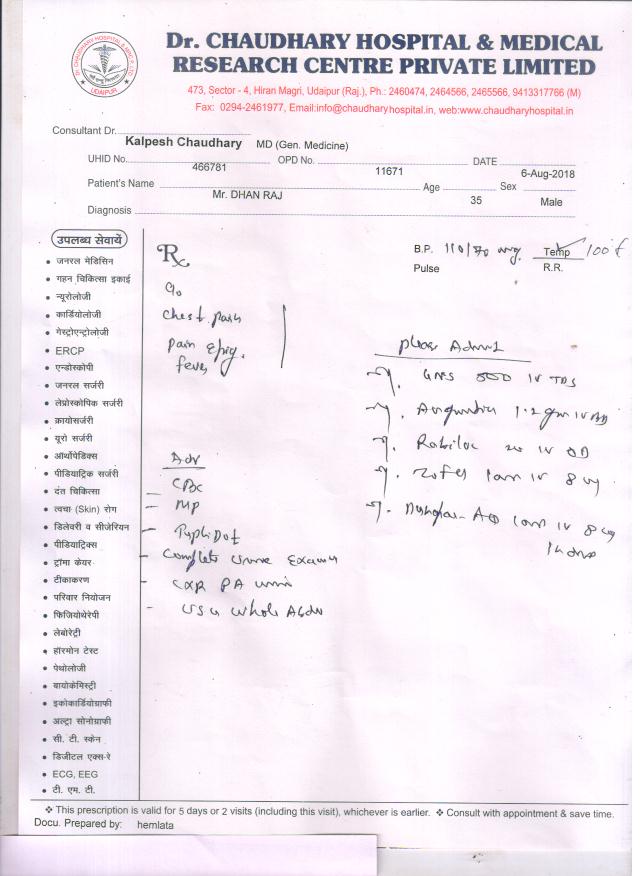 Dr. CHAUDHARY HOSPITAL & MEDICAL
RESEARCH CENTRE PRIVATE LIMITED
473, Sector - 4, Hiran Magri, Udaipur (Raj.), Ph.: 2460474, 2464566, 2465566, 9413317766 (M)
Fax: 0294-2461977, Email:info@chaudharyhospital.in, web:www.chaudharyhospital.in
UDAIPUR
Consultant Dr.
Kalpesh Chaudhary MD (Gen. Medicine)
UHID No. 466781 OPD No. 11671 DATE 6-Aug-2018
Patient's Name Mr. DHAN RAJ Age 35 Sex Male
Diagnosis
B.P. 110/70 Temp 100 f
Pulse R.R.
उपलब्ध सेवायें
जनरल मेडिसिन
गहन चिकित्सा इकाई
न्यूरोलोजी
कार्डियोलोजी
गेस्ट्रोएन्ट्रोलोजी
ERCP
एन्डोस्कोपी
जनरल सर्जरी
लेप्रोस्कोपिक सर्जरी
क्रायोसर्जरी
यूरो सर्जरी
ऑर्थोपेडिक्स
पीडियाट्रिक सर्जरी
दंत चिकित्सा
त्वचा (Skin) रोग
डिलेवरी व सीजेरियन
पीडियाट्रिक्स
ट्रॉमा केयर
टीकाकरण
परिवार नियोजन
फिजियोथेरेपी
लेबोरेट्री
हॉरमोन टेस्ट
पेथोलोजी
बायोकेमिस्ट्री
इकोकार्डियोग्राफी
अल्ट्रा सोनोग्राफी
सी. टी. स्केन
डिजीटल एक्स-रे
ECG, EEG
टी. एम. टी.
Rx
c/o
Chest pain
Pain Epig.
fever
Adv
CBC
- MP
- Typhi Dot
- Complete Urine Exam
- CXR PA
- USG Whole Abdn
please Admit
500 IV TDS
1.2 gm IV BD
20 IV OD
1 am IV 8
1 am IV 8
❖ This prescription is valid for 5 days or 2 visits (including this visit), whichever is earlier. ❖ Consult with appointment & save time.
Docu. Prepared by: hemlata